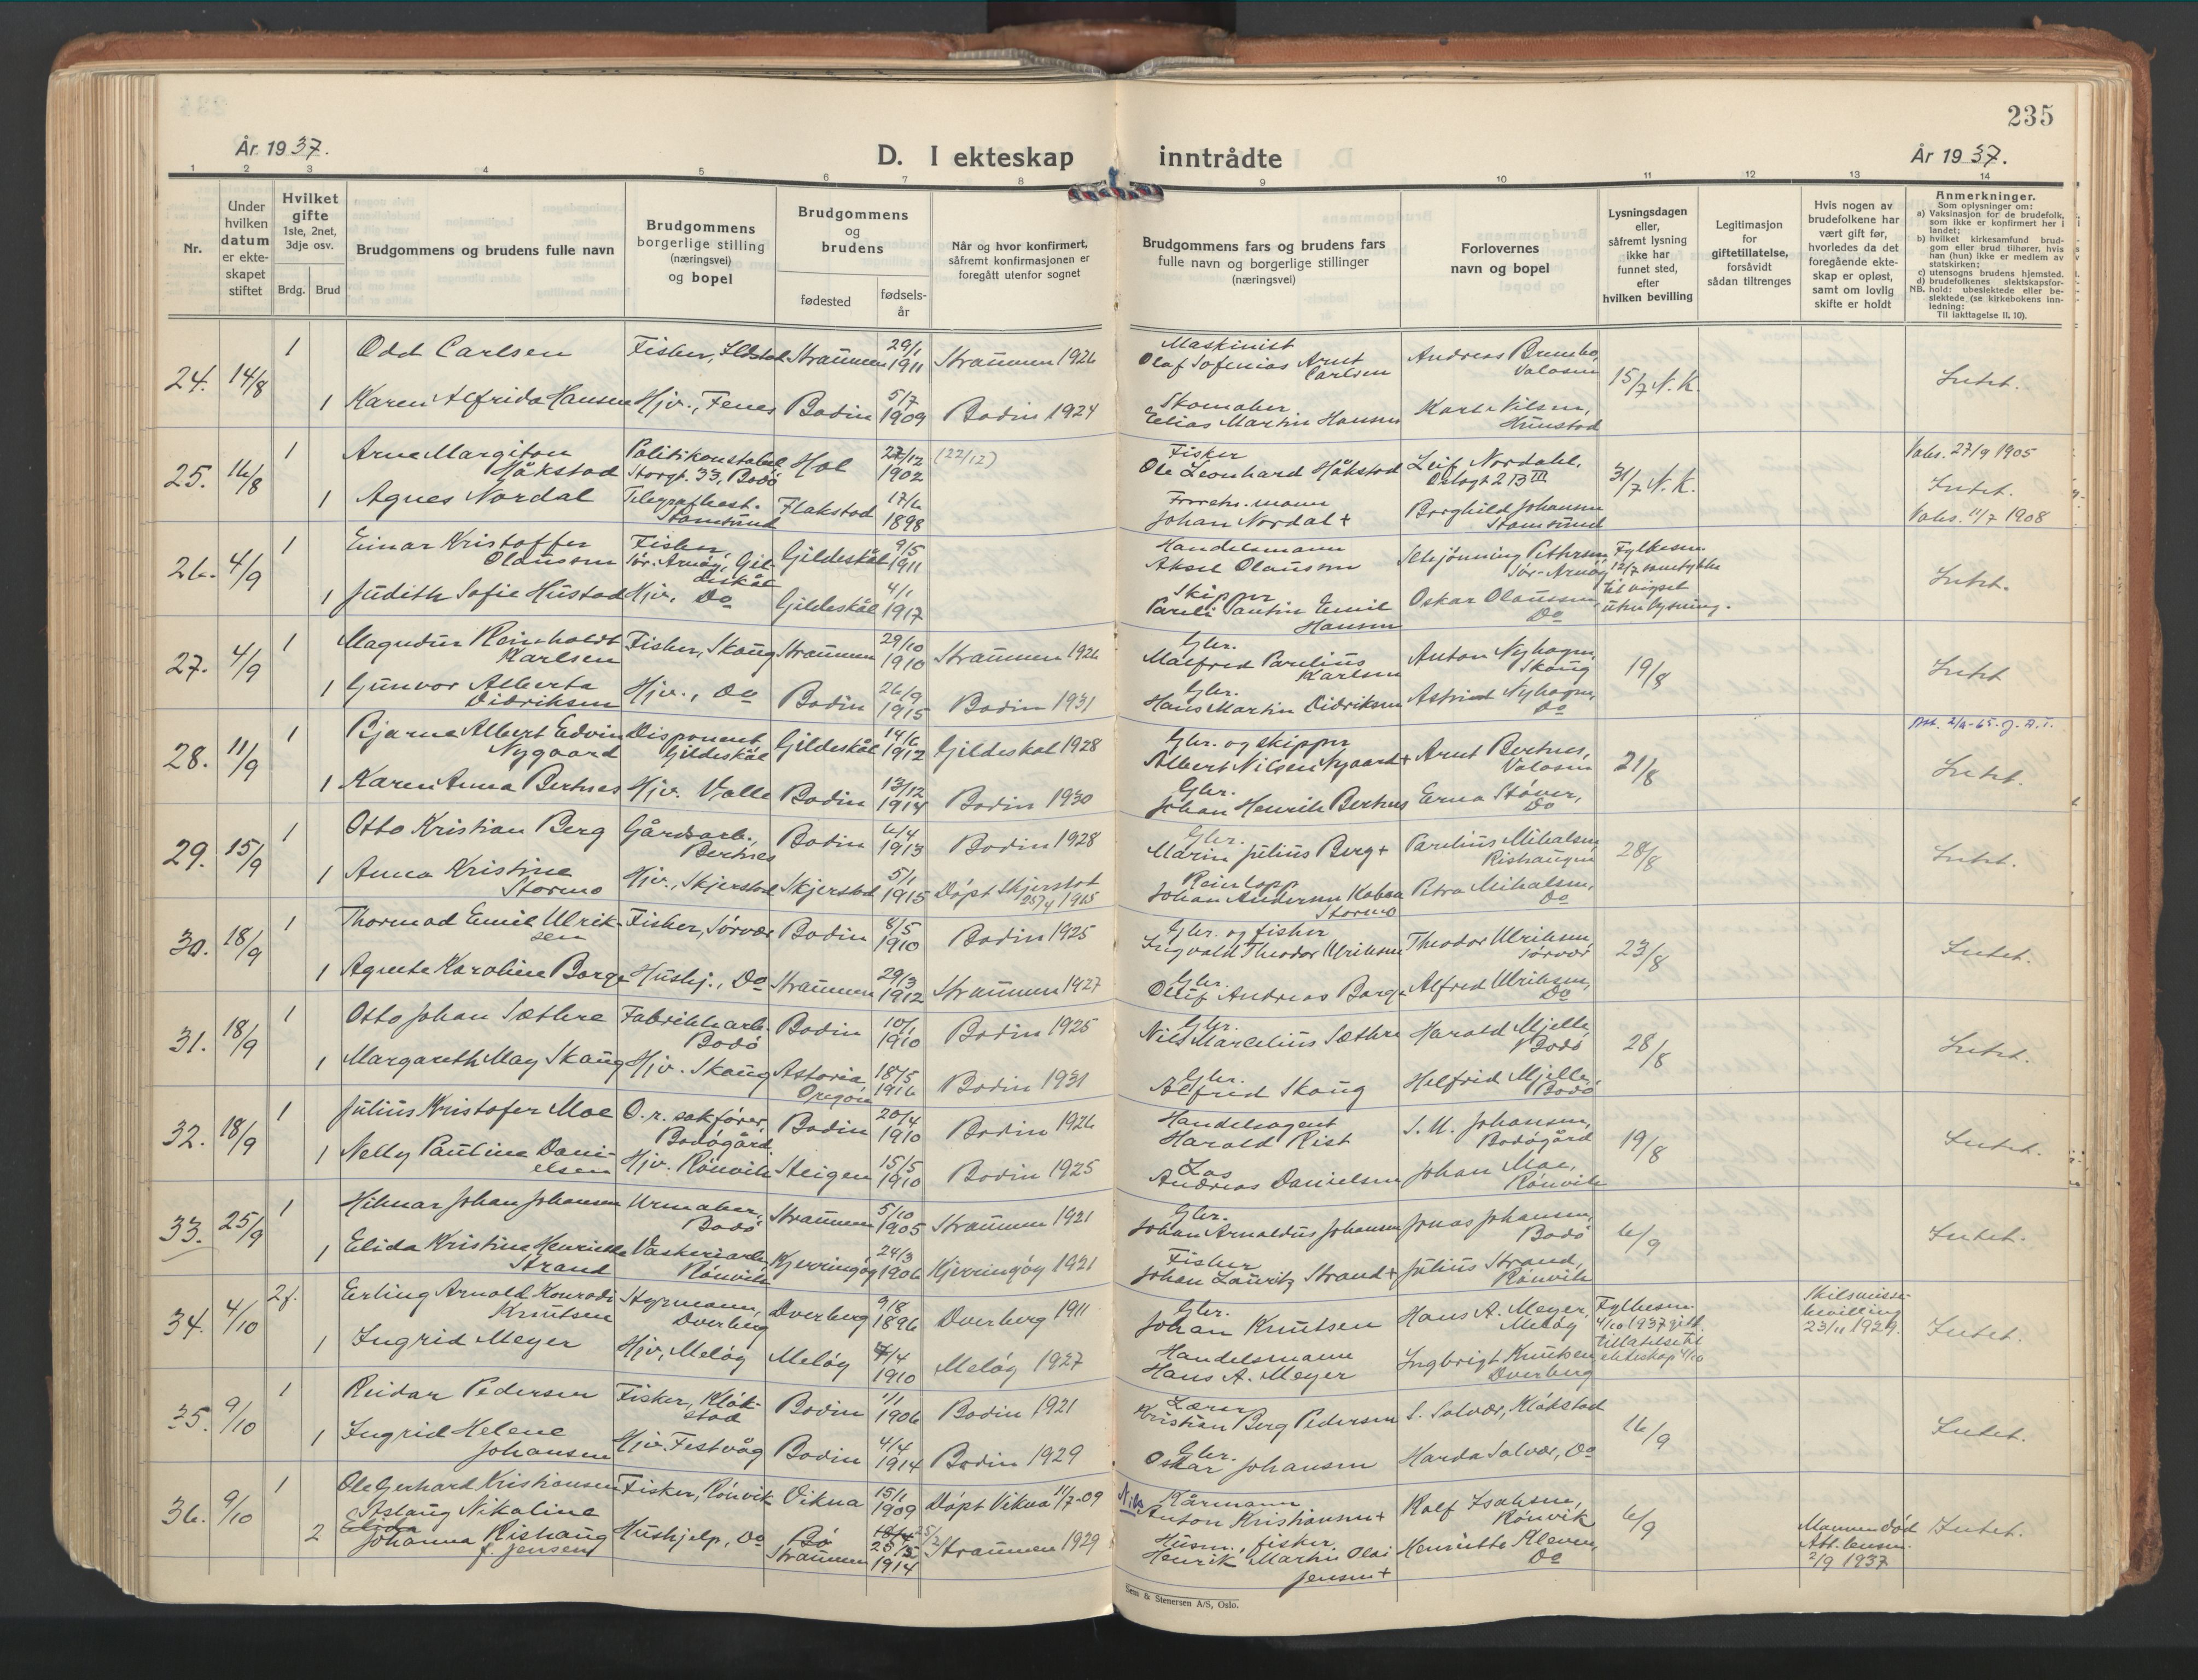 235
År 1937.
D. I ekteskap inntrådte
År 1937.
1 2 3 4 5 6 7 8 9 10 11 12 13 14
Nr.
Under
hvilken
datum
er ekte-
skapet
stiftet
Hvilket
gifte
1ste, 2net,
3dje osv.
Brdg. Brud
Brudgommens og brudens fulle navn
Brudgommens
borgerlige stilling
(næringsvei)
og bopel
Brudgommens
og
brudens
fødested
fødsels-
år
Når og hvor konfirmert,
såfremt konfirmasjonen er
foregått utenfor sognet
Brudgommens fars og brudens fars
fulle navn og borgerlige stillinger
(næringsvei)
Forlovernes
navn og bopel
Lysningsdagen
eller,
såfremt lysning
ikke har
funnet sted,
efter
hvilken bevilling
Legitimasjon
for
giftetillatelse,
forsåvidt
sådan tiltrenges
Hvis nogen av
brudefolkene har
vært gift før,
hvorledes da det
foregående ekte-
skap er opløst,
samt om lovlig
skifte er holdt
Anmerkninger.
Som oplysninger om:
a) Vaksinasjon for de brudefolk,
som ikke er konfirmert her i
landet;
b) hvilket kirkesamfund brud-
gom eller brud tilhører, hvis
han (hun) ikke er medlem av
statskirken;
c) utensogns brudens hjemsted.
d) brudefolkenes slektskapsfor-
NB. hold: ubeslektede eller be-
slektede (se kirkebokens inn-
ledning:
Til iakttagelse II. 10).
24. 14/8
1 Odd Carlsen Fisker, Straumen 29/1 1911 Straumen 1926
Maskinist
Olaf Sofenias Arnt Carlsen
Andreas Brembo, Valosen
15/7 N. K.
Intet.
1 Karen Alfrida Hansen Hjv., Fenes Bodin 5/7 1909 Bodin 1924
Skomaker
Elias Martin Hansen
Karl Nilsen,
25. 16/8
1 Arne Margiton Håkstad Politikonstabel Storgt. 33, Bodø Hol 27/12 1902 (22/12)
Fisker
Ole Leonhard Håkstad
Leif Nordahl,
31/7 N. K.
Vaks. 27/9 1905
Intet.
1 Agnes Nordal Telegrafbest. Stamsund Flakstad 17/6 1898
Forretn. mann
Johan Nordal +
Borghild Johansen Stamsund
Vaks. 11/7 1908
26. 4/9
1 Einar Kristoffer Olaussen Fisker, Sør-Arnøy, Gildeskål Gildeskål 9/5 1911
Handelsmann
Aksel Olaussen
Schjønning Pettersen, Sør-Arnøy
Fylkesm. 12/7 samtykke til vigsel uten lysning.
Intet.
1 Judith Sofie Hustad Hjv. Do Gildeskål 4/1 1917
Skipper
Pareli Santin Emil Hansen
Oskar Olaussen, Do
27. 4/9
1 Magndur Reinholdt Karlsen Fisker, Skaug Straumen 29/10 1910 Straumen 1926
Gbr.
Malfred Parelius Karlsen
Anton Nyhagen, Skaug
19/8
Intet
1 Gunvor Alberta Didriksen Hjv., Do Bodin 26/9 1915 Bodin 1931
Gbr.
Hans Martin Didriksen
Astrid Nyhagen, Do
28. 11/9
1 Bjarne Albert Edvin Nygaard Disponent Gildeskål Gildeskål 14/6 1912 Gildeskål 1928
Gbr. og skipper
Albert Nilsen Nygaard +
Arnt Bertnes, Valosen
21/8
Att. 2/2-65. J. A. T.
Intet.
1 Karen Anna Bertnes Hjv. Valle Bodin 13/12 1914 Bodin 1930
Gbr.
Johan Henrik Bertnes
Erna Støver, Do
29. 15/9
1 Otto Kristian Berg Gårdsarb., Bertnes Bodin 6/4 1913 Bodin 1928
Gbr.
Marin Julius Berg +
Parelius Mikalsen, Rishaugen
28/8
Intet.
1 Anna Kristine Stormo Hjv., Skjerstad Skjerstad 5/1 1915 Døpt Skjerstad 25/4 1915
Reinlapp
Johan Andersen Kabaa Stormo
Petra Mikalsen, Do
30. 18/9
1 Thormod Emil Ulriksen Fisker, Sørvær Bodin 8/5 1910 Bodin 1925
Gbr. og fisker
Ingvald Theodor Ulriksen
Theodor Ulriksen, Sørvær
23/8
Intet.
1 Agnete Karoline Borge Hushj., Do Straumen 29/3 1912 Straumen 1927
Gbr.
Oluf Andreas Borge
Alfred Ulriksen, Do
31. 18/9
1 Otto Johan Sæthre Fabrikkarb. Bodø Bodin 10/1 1910 Bodin 1925
Gbr.
Nils Marcelius Sæthre
Harald Mjelle, Bodø
28/8
Intet.
1 Margareth May Skaug Hjv. Skaug Astoria, Oregon 18/5 1916 Bodin 1931
Gbr.
Alfred Skaug
Helfrid Mjelle, Bodø
32. 18/9
1 Julius Kristofer Moe O.r. sakfører, Bodøgård Bodin 20/4 1910 Bodin 1926
Handelsagent
Harald Rist
S. M. Johansen, Bodøgård
19/8
Intet.
1 Nelly Pauline Danielsen Hjv. Rønvik Steigen 15/5 1910 Bodin 1925
Los
Andreas Danielsen
Johan Moe, Rønvik
33. 25/9
1 Hilmar Johan Johansen Urmaker, Bodø Straumen 5/10 1905 Straumen 1921
Gbr.
Johan Arnoldus Johansen
Jonas Johansen, Bodø
6/9
Intet.
1 Elida Kristine Henriette Strand Vaskeriarb. Rønvik Kjerringøy 24/3 1906 Kjerringøy 1921
Fisker
Johan Lauritz Strand +
Julius Strand, Rønvik
34. 4/10
2f. Erling Arnold Konradi Knutsen Styrmann, Dverberg Dverberg 9/8 1896 Dverberg 1911
Gbr.
Johan Knutsen
Hans A. Meyer, Meløy
Fylkesm. 4/10 1937 gitt tillatelse til ekteskap 4/10
Skilsmisse-
bevilling
23/11 1929.
Intet.
1 Ingrid Meyer Hjv, Meløy Meløy 7/4 1910 Meløy 1927
Handelsmann
Hans A. Meyer
Ingbrigt Knutsen, Dverberg
35. 9/10
1 Reidar Pedersen Fisker, Kløkstad Bodin 1/1 1906 Bodin 1921
Lærer
Kristian Berg Pedersen
S. Salvær, Kløkstad
16/9
Intet.
1 Ingrid Helene Johansen Hjv. Festvåg Bodin 4/4 1914 Bodin 1929
Gbr.
Oskar Johansen
Harda Salvær, Do
36. 9/10
1 Ole Gerhard Kristiansen Fisker, Rønvik Vikna 15/1 1909 Døpt Vikna 11/7-09
Nils Kårmann
Anton Kristiansen +
Rolf Isaksen, Rønvik
6/9
Intet.
2 Aslaug Nikaline Elida Johanna Rishaug f. Jensen Hushjelp, Do Bø Straumen 25/2 1914 Straumen 1929
Husm., fisker
Henrik Martin Olai Jensen +
Henriette Kleven, Do
Mannen død
Att. lensm.
2/9 1937
Sem & Stenersen A/S, Oslo.